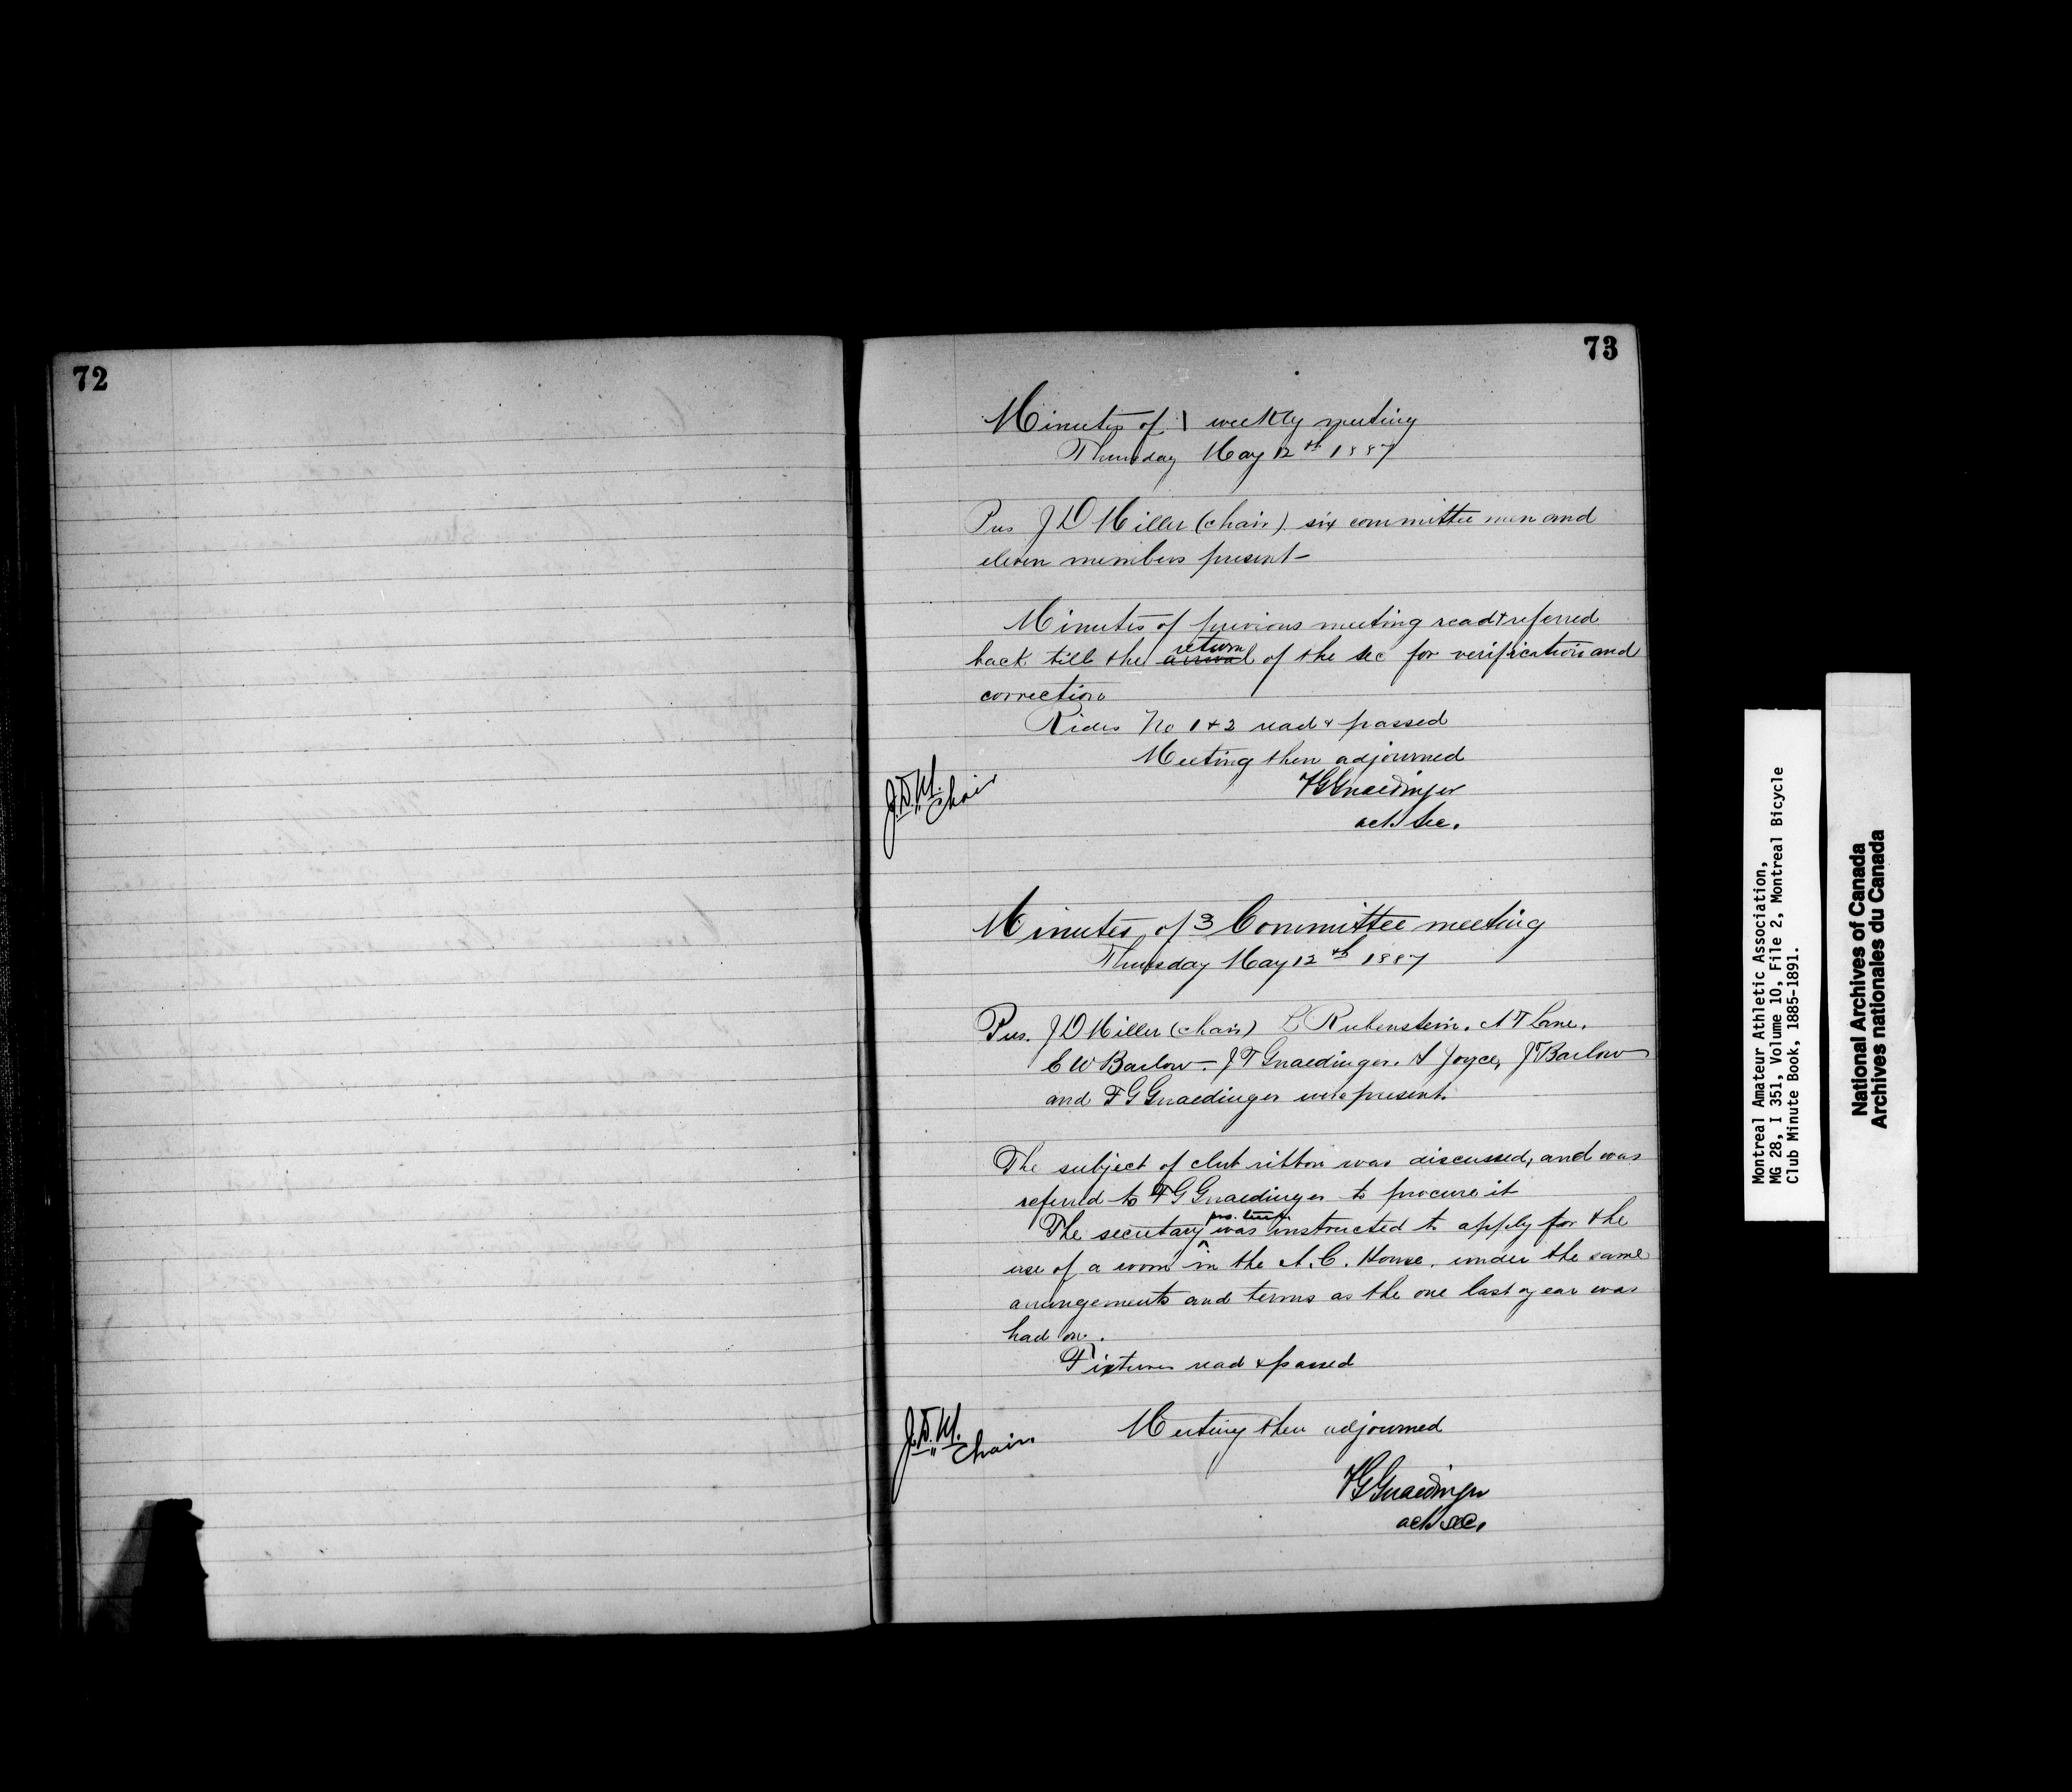 72
73
Minutes of 1 weekly meeting
Thursday May 12th 1887
Pres J D Miller (chair) six committee men and
eleven members present—
Minutes of previous meeting read & referred
back till the arrival return of the sec for verification and
correction
Rides No 1 & 2 read & passed
Meeting then adjourned
J.D.M. Chair
F G Gnaedinger
act. Sec.
Minutes of 3 Committee meeting
Thursday May 12th 1887
Pres. J D Miller (chair) L Rubenstein. A T Lane.
C W Barlow — J T Gnaedinger. A Joyce, J T Barlow
and F G Gnaedinger were present.
The subject of club ribbon was discussed, and was
referred to F G Gnaedinger to procure it
The secretary pro. temp. was instructed to apply for the
use of a room in the A. C. House. under the same
arrangements and terms as the one last year was
had on.
Fixtures read & passed
Meeting then adjourned
J.D.M. Chair
F G Gnaedinger
act sec.
Montreal Amateur Athletic Association,
MG 28, I 351, Volume 10, File 2, Montreal Bicycle
Club Minute Book, 1885-1891.
National Archives of Canada
Archives nationales du Canada